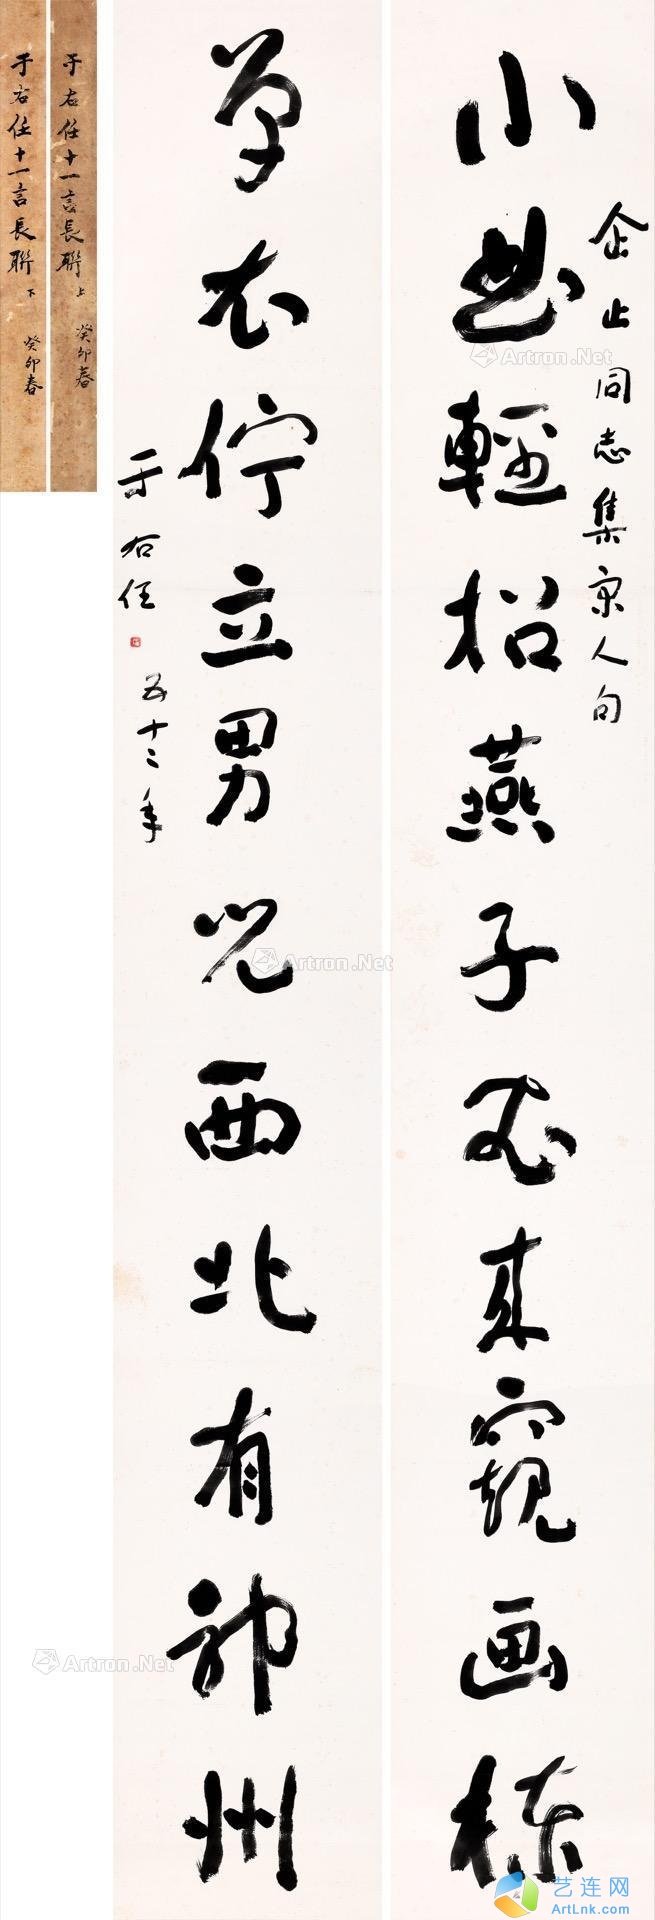 小曲輕招燕子來窺画棟
企止同志集宋人句
單衣佇立男兒西北有神州
于右任
五十二年
于右任十一言長聯 上 癸卯春
于右任十一言長聯 下 癸卯春
Artron.Net
Artron.Net
Artron.Net
艺连网
ArtLnk.com